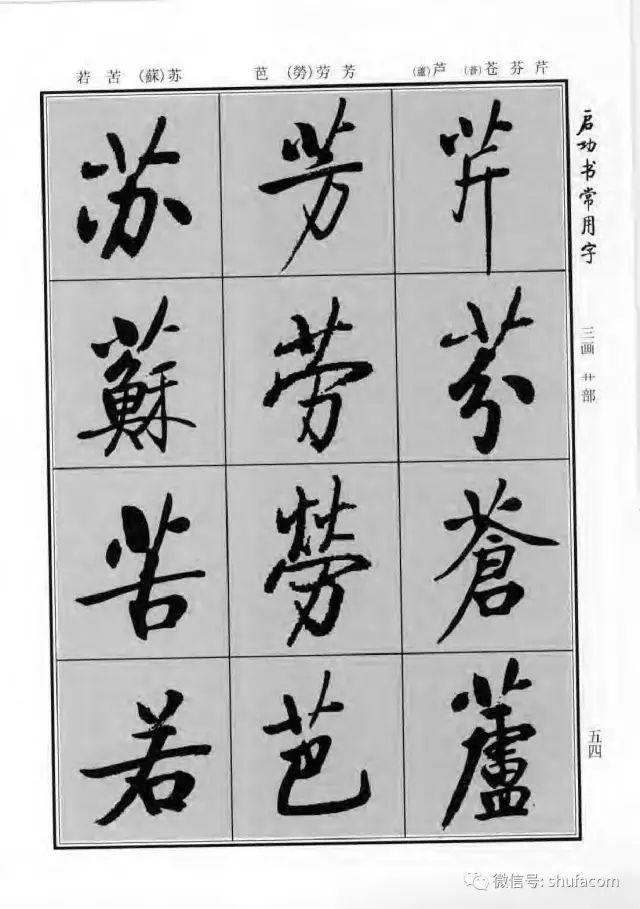 启功书常用字
三画 艹部
五四
芹 芬 苍(蒼) 芦(蘆)
芳 劳(勞) 芭
苏(蘇) 苦 若
芹
芬
蒼
蘆
芳
劳
勞
芭
苏
蘇
苦
若
微信号: shufacom